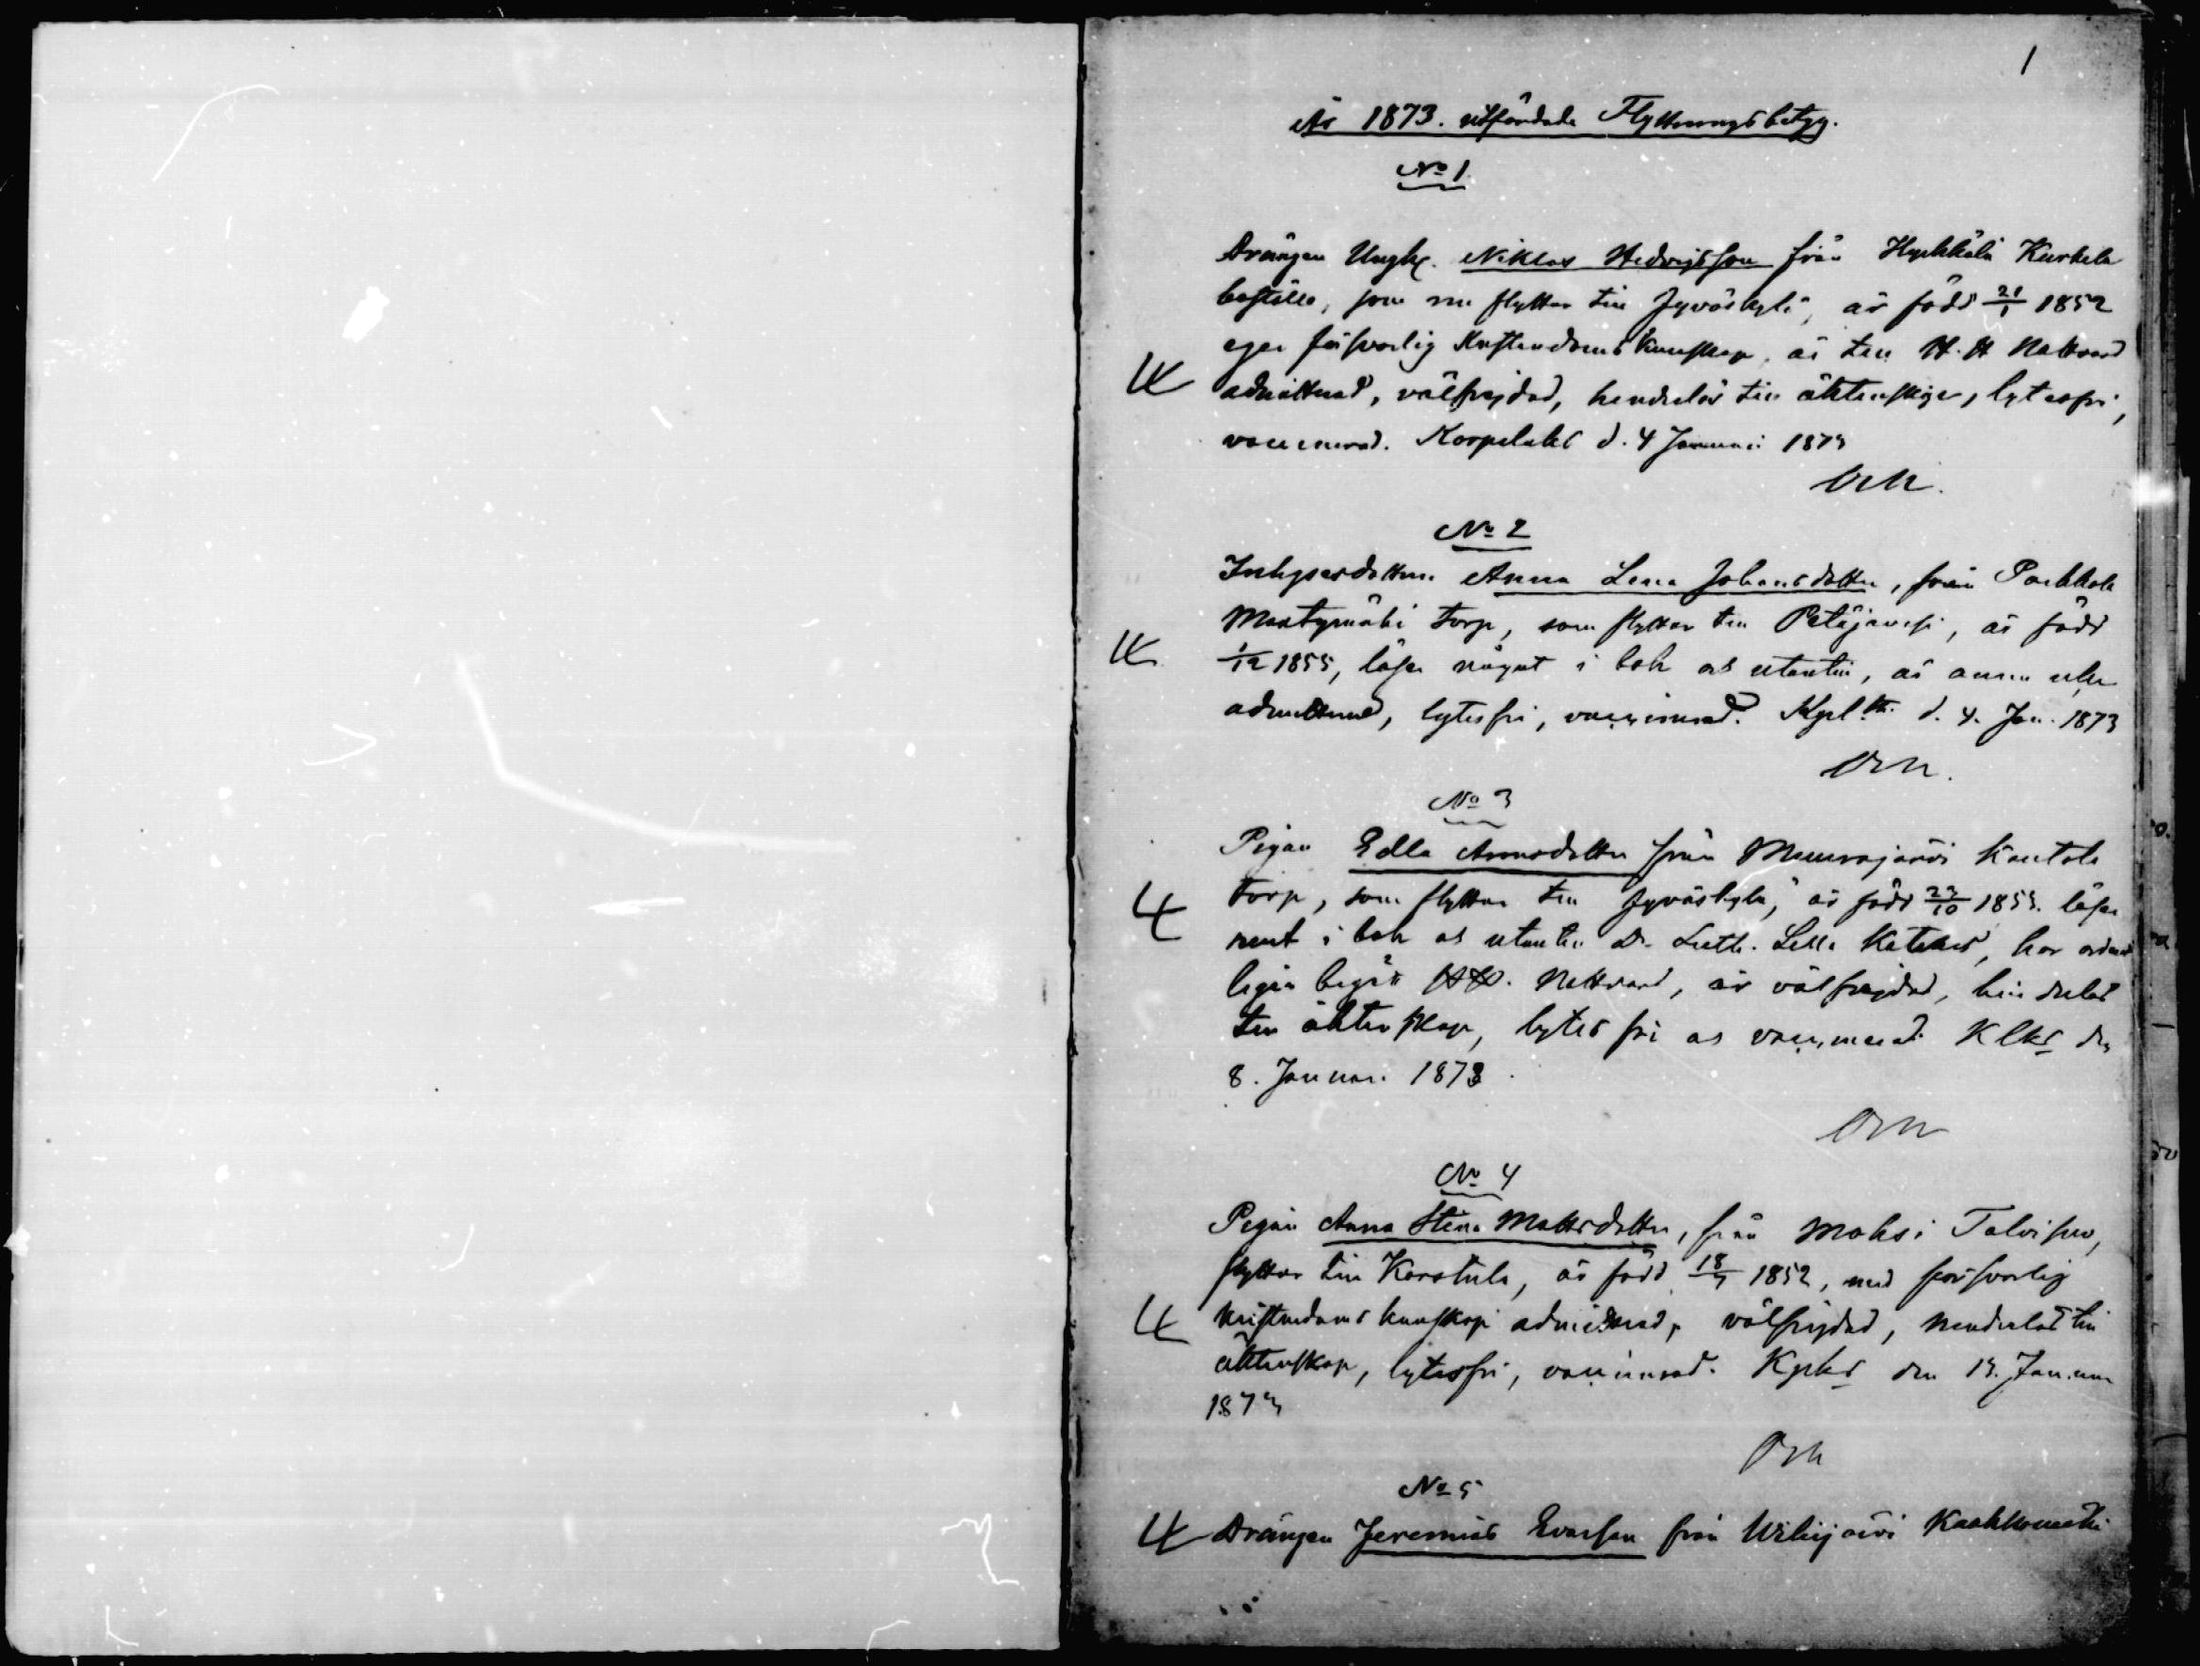 1
År 1873. utfärdade Flyttningsbetyg.
No 1
Drängen Ynglg. Niklas Hedvigsson från Hyckkälä Kurkela
boställe, som nu flyttar till Jyväskylä, är född 21/1 1852
eger försvarlig Kristendoms kunskap, är till H. H. Nattvard
admitterad, välfrejdad, hinderlös till äktenskap, lytesfri,
vaccinerad. Korpilaks d. 4 Januari 1873
No 2
Inhysesdottern Anna Lena Johansdotter, från
torp, som flyttar till Petäjävesi, är född
1/12 1855, läser något i bok och utantill, är ännu icke
admitterad, lytesfri, vaccinerad. d. 4. Jan. 1873
No 3
Pigan Edla Annasdotter från Muurajärvi Kantola
torp, som flyttar till Jyväskylä, är född 23/10 1853. läser
rent i bok och utantill Dr. Luth. Lilla Kateches, har
ligen begått H. H. Nattvard, är välfrejdad, hinderlös
till äktenskap, lytesfri och vaccinerad. Klks den
8. Januari 1873.
No 4
Pigan Anna Stina Mattsdotter, från Moksi Talvisuo,
flyttar till Karstula, är född 18/7 1852, med försvarlig
kristendoms kunskap admitterad, välfrejdad, hinderlös till
äktenskap, lytesfri, vaccinerad. Kplks den 13. Januari
1873
No 5
Drängen Jeremias Evasson från Wihijärvi Kaakkomäki